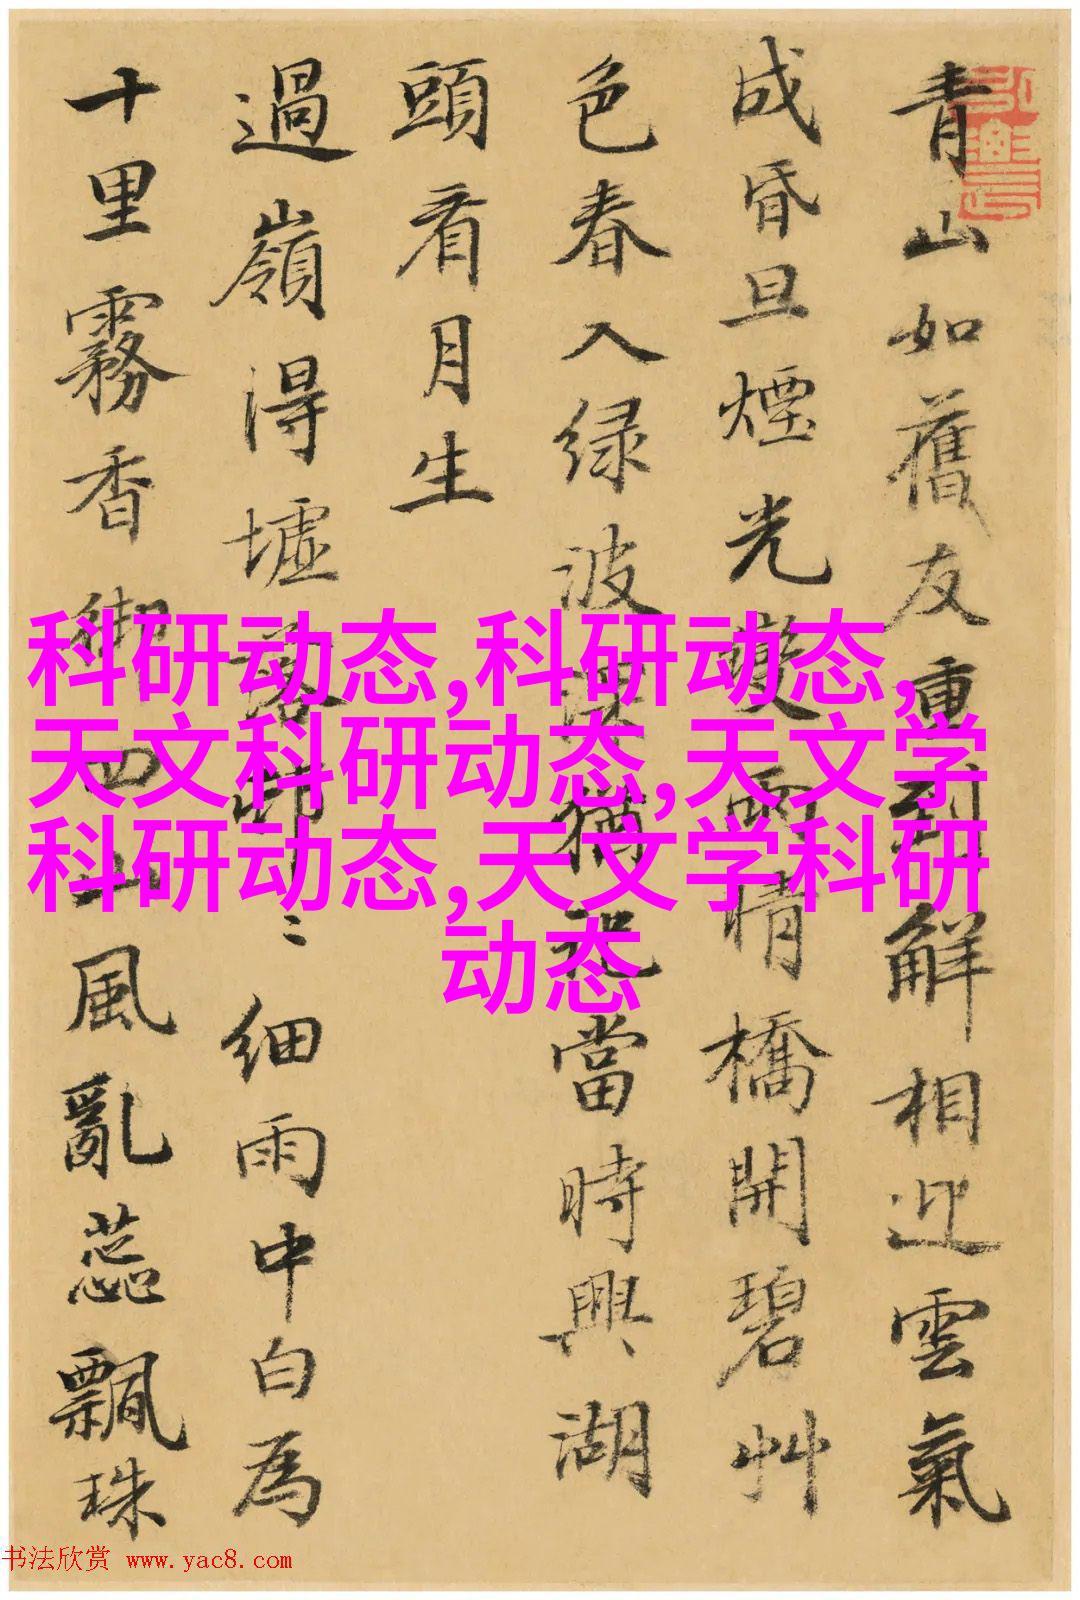 青山如舊友重到解相迎雲氣
成昏旦煙光變雨晴橋開碧艸
色春入绿波深猶記當時興湖
頭看月生
過嶺得墟落邨〻細雨中白為
十里霧香御四山風亂蕊飄珠
科研动态,科研动态,
天文科研动态,天文学
科研动态,天文学科研
动态
书法欣赏 www.yac8.com